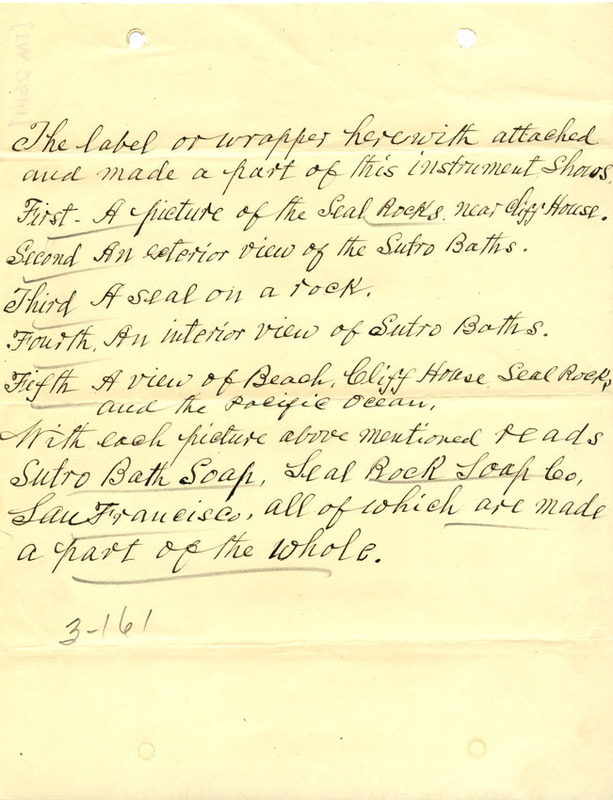 The label or wrapper herewith attached
and made a part of this instrument Shows.
First - A picture of the Seal Rocks. near Cliff House.
Second An exterior view of the Sutro Baths.
Third A seal on a rock.
Fourth. An interior view of Sutro Baths.
Fifth A view of Beach. Cliff House. Seal Rocks,
and the Pacific Ocean.
With each picture above mentioned reads
Sutro Bath Soap, Seal Rock Soap Co,
San Francisco, all of which are made
a part of the whole.
3-161